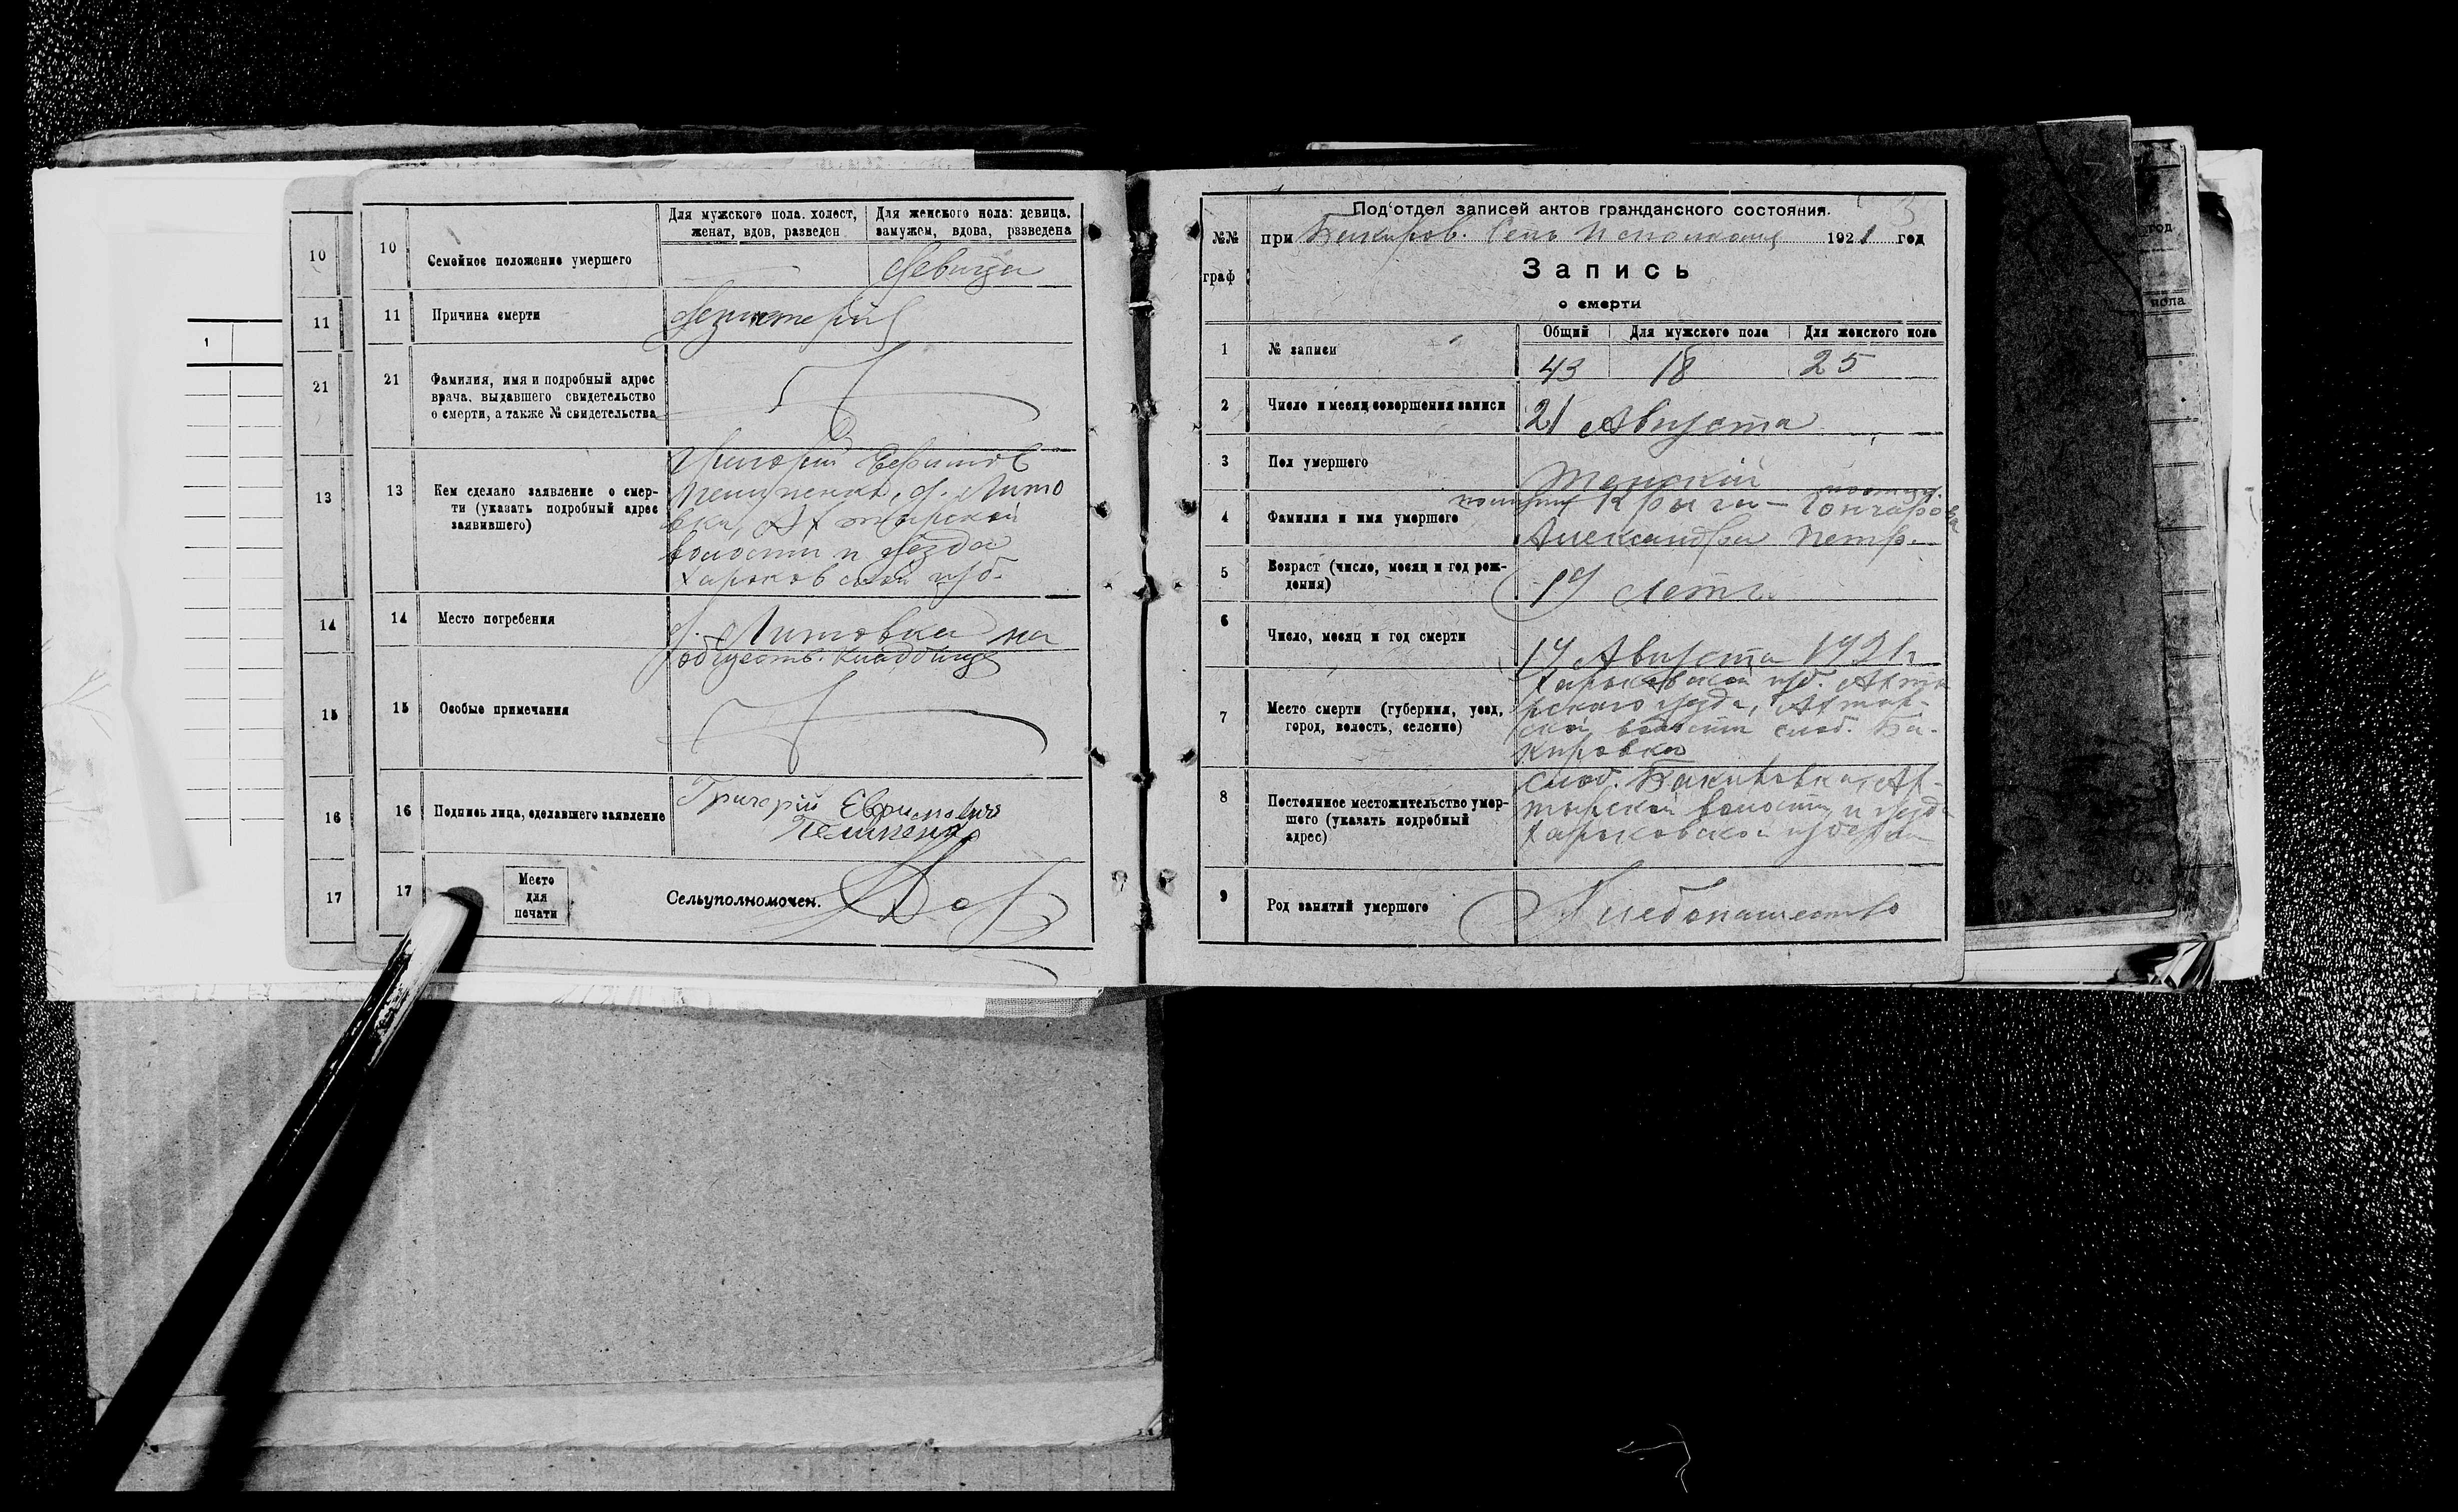 10
11
21
13
14
15
16
17
1
10
Семейное положение умершего
Для мужского пола. холост,
женат, вдов, разведен
Для женского пола: девица,
замужем, вдова, разведена
девица
11
Причина смерти
21
Фамилия, имя и подробный адрес
врача, выдавшего свидетельство
о смерти, а также № свидетельства
13
Кем сделано заявление о смер-
ти (указать подробный адрес
заявившего)
Григорий Ефимов
д. Лито
вки, Ахтырской
волости и уезда
Харьковской губ.
14
Место погребения
д. Литовка на
обществ. кладбище
15
Особые примечания
16
Подпись лица, сделавшего заявление
Григорий
17
Место
для
печати
Сельуполномочен.
№№
граф
Под'отдел записей актов гражданского состояния.
при Бакиров. 1921 год
Запись
о смерти
1
№ записи
Общий
Для мужского пола
Для женского пола
43
18
25
2
Число и месяц совершения записи
21 Августа
3
Пол умершего
Женский
4
Фамилия и имя умершего
Гончарова
Александра Петр.
5
Возраст (число, месяц и год рож-
дения)
лет
6
Число, месяц и год смерти
Августа 1921 г.
7
Место смерти (губерния, уезд,
город, волость, селение)
Харьковской губ. Ахты
рского уезда, Ахтыр-
ской волости слоб. Ба-
кировка
8
Постоянное местожительство умер-
шего (указать подробный
адрес)
слоб. Бакировка, Ах-
тырской волости и уезда
Харьковской губернии
9
Род занятий умершего
Хлебопашество
год
пола